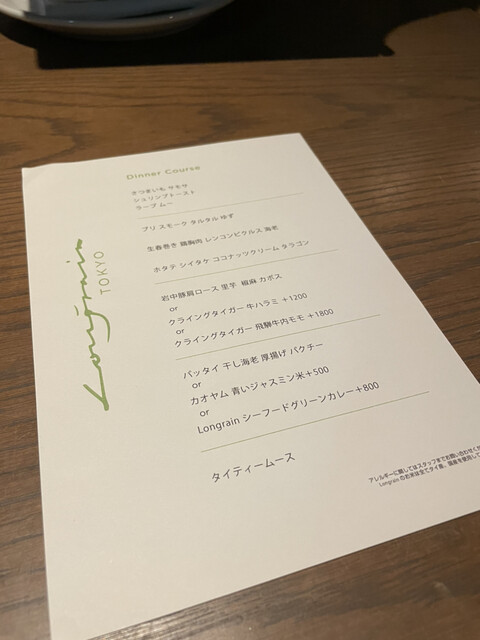 Dinner Course
さつまいも サモサ
シュリンプトースト
ラープ ムー
ブリ スモーク タルタル ゆず
生春巻き 鶏胸肉 レンコンピクルス 海老
ホタテ シイタケ ココナッツクリーム タラゴン
岩中豚肩ロース 里芋 椒麻 カボス
or
クライングタイガー 牛ハラミ +1200
or
クライングタイガー 飛騨牛内モモ +1800
パッタイ 干し海老 厚揚げ パクチー
or
カオヤム 青いジャスミン米+500
or
Longrain シーフードグリーンカレー+800
タイティームース
Longrain
TOKYO
アレルギーに関してはスタッフまでお問い合わせくだ
Longrain のお米は全てタイ産、国産を使用して